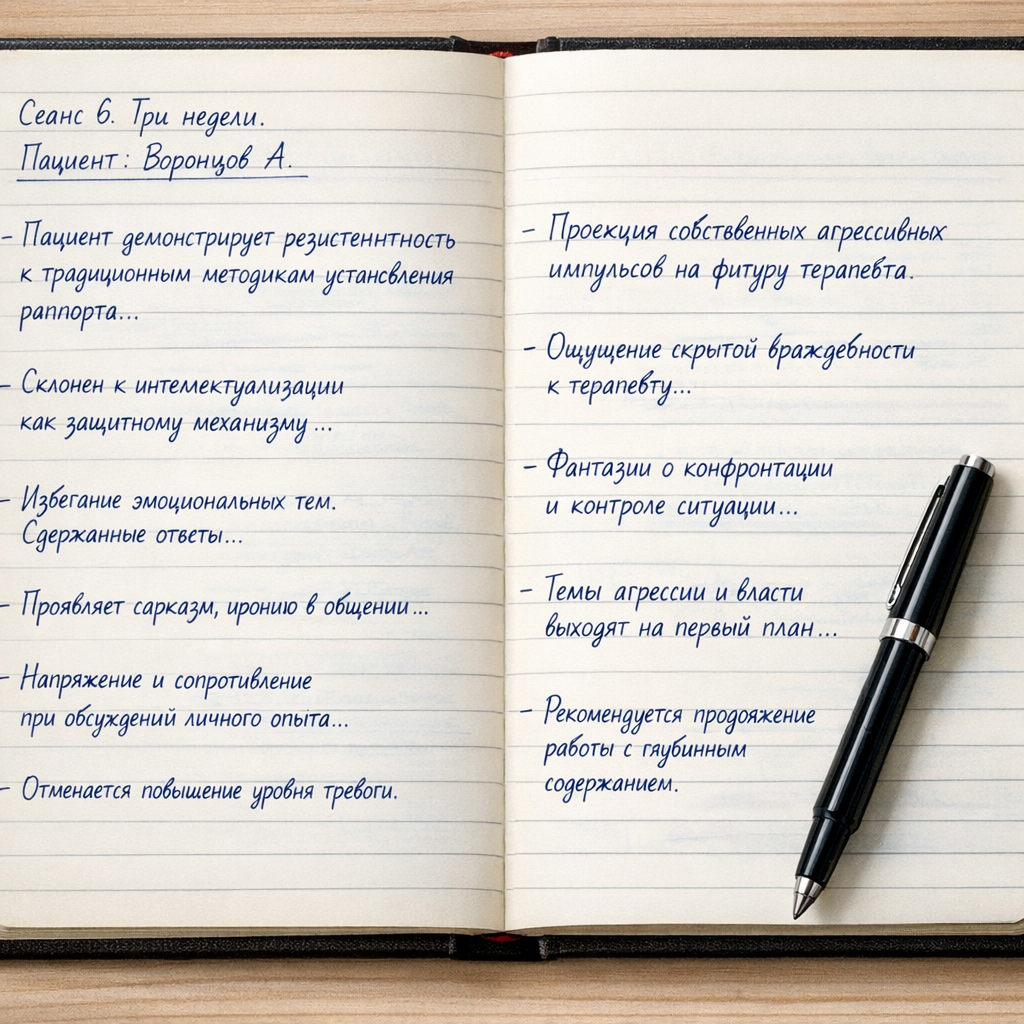 Сеанс 6. Три недели.
Пациент: Воронцов А.
- Пациент демонстрирует резистеннтность
к традиционным методикам устансвления
раппорта...
- Склонен к интемектуализации
как защитному механизму ...
- Избегание эмоциональных тем.
Сдержанные ответы...
- Проявляет сарказм, иронию в общении...
- Напряжение и сопротивление
при обсуждений личного опыта...
- Отменается повышение уровня тревоги.
- Проекция собстввенных агрессивных
импульсов на фитуру терапевта.
- Ощущение скрытой враждебности
к терапевту...
- Фантазии о конфронтации
и контроле ситуации...
- Темы агрессии и власти
выходят на первый план...
- Рекомендуется продояжение
работы с гяубинным
содержанием.